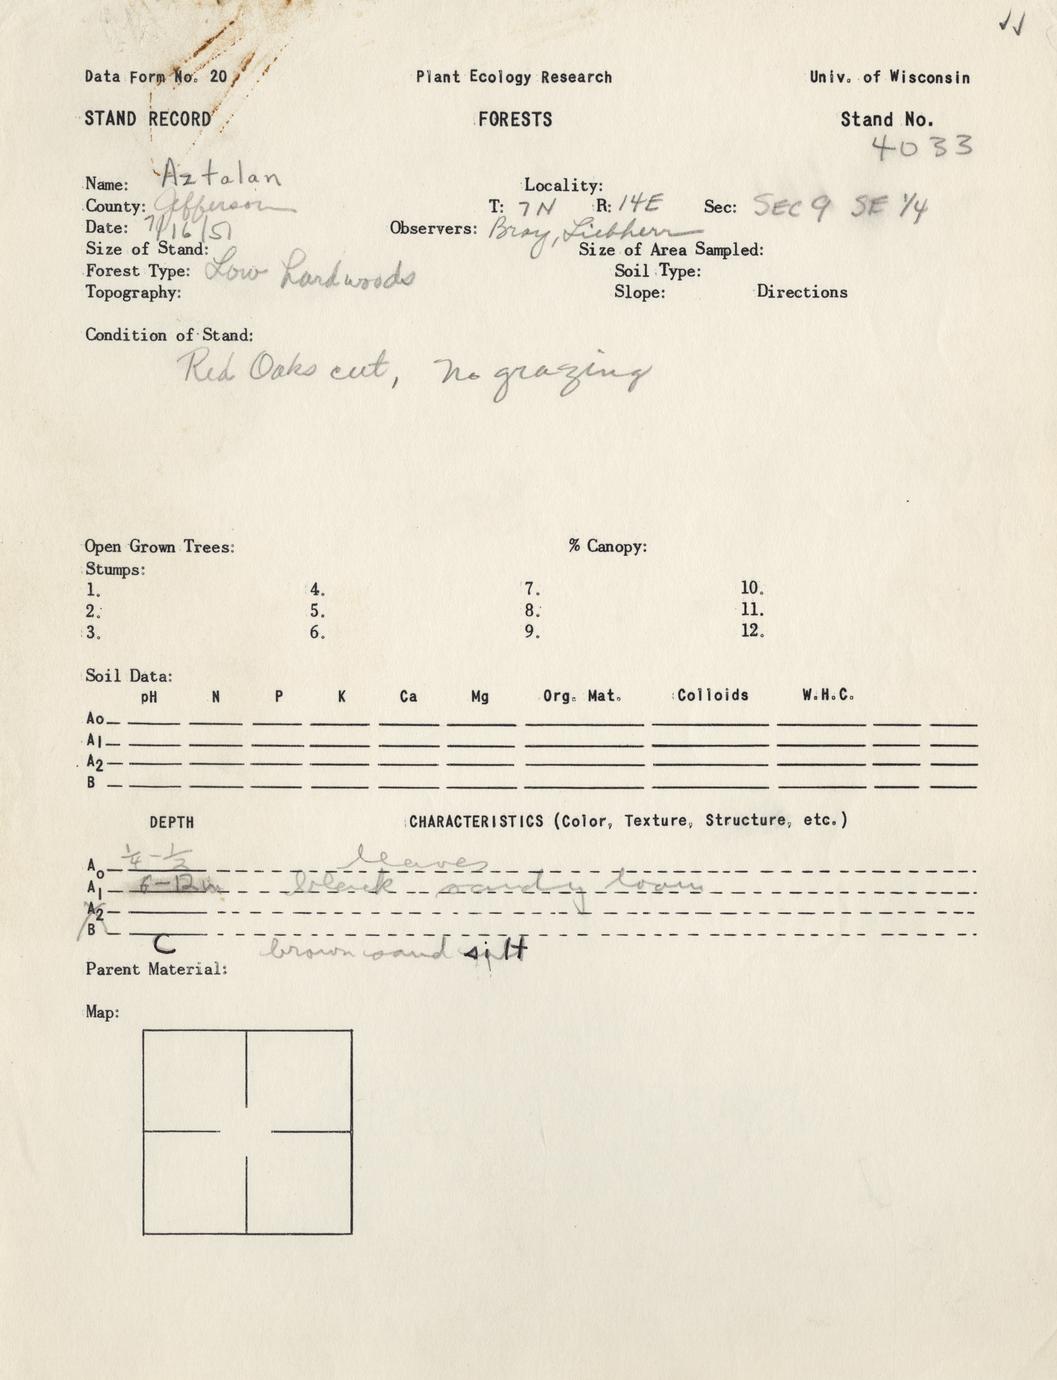 Data Form No. 20 Plant Ecology Research Univ. of Wisconsin
STAND RECORD FORESTS Stand No.
4033
Name: Aztalan Locality:
County: Jefferson T: 7N R: 14E Sec: SEC 9 SE 1/4
Date: 7/16/51 Observers: Bray, Liebherr
Size of Stand: Size of Area Sampled:
Forest Type: Low hardwoods Soil Type:
Topography: Slope: Directions
Condition of Stand:
Red Oaks cut, No grazing
Open Grown Trees: % Canopy:
Stumps:
1. 4. 7. 10.
2. 5. 8. 11.
3. 6. 9. 12.
Soil Data:
pH N P K Ca Mg Org. Mat. Colloids W.H.C.
Ao
A1
A2
B
DEPTH CHARACTERISTICS (Color, Texture, Structure, etc.)
Ao 1/4-1/2 leaves
A1 6-12in black sandy loam
A2
B
C brown sand silt
Parent Material:
Map: